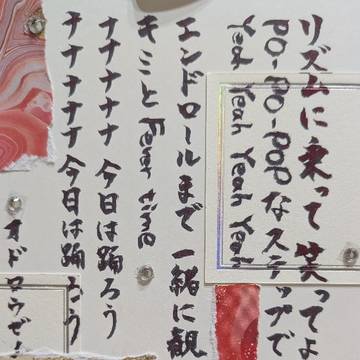 リズムに乗って 笑ってよ
Po-Po-Popなステップで
Yeah Yeah Yeah Yeah
エンドロールまで 一緒に観
キミと Fever time
ナナナナナ 今日は踊ろう
ナナナナナ 今日は踊ろう
オドロウゼ!